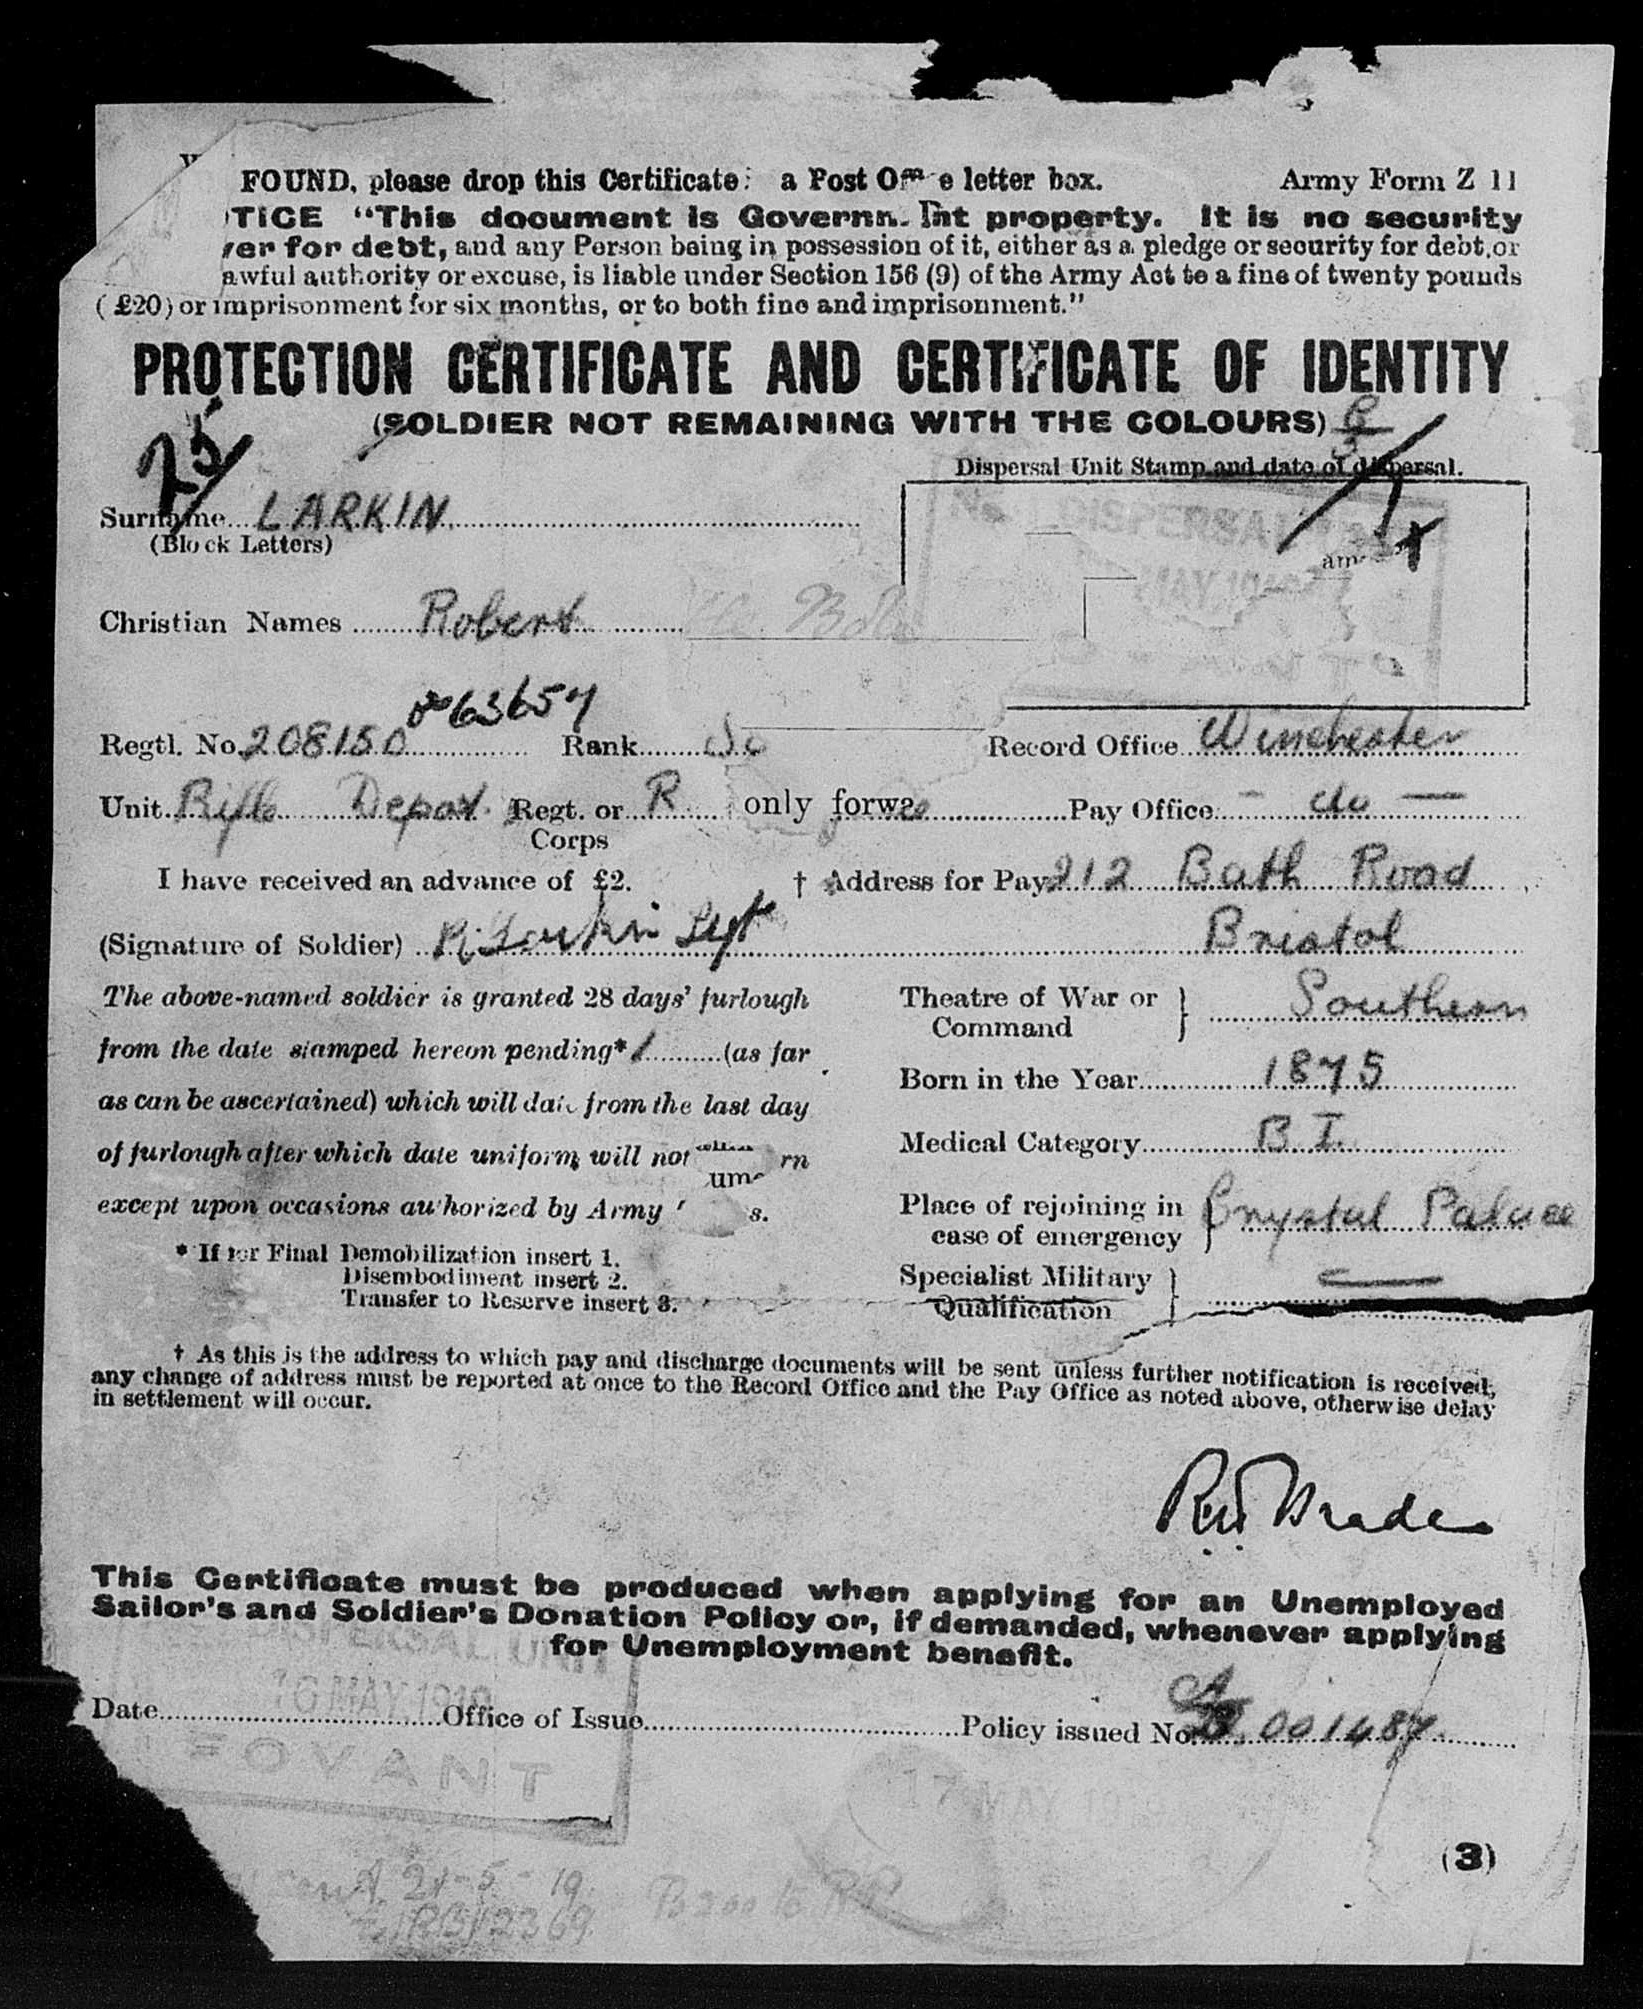 FOUND, please drop this Certificate a Post O e letter box. Army Form Z 11
TICE "This document is Governm nt property. It is no security
ver for debt, and any Person being in possession of it, either as a pledge or security for debt, or
awful authority or excuse, is liable under Section 156 (9) of the Army Act to a fine of twenty pounds
(£20) or imprisonment for six months, or to both fine and imprisonment."
PROTECTION CERTIFICATE AND CERTIFICATE OF IDENTITY
(SOLDIER NOT REMAINING WITH THE COLOURS)
25
Dispersal Unit Stamp and date of dispersal.
Surname LARKIN
(Block Letters)
DISPERSAL
MAY 19
Christian Names Robert
63657
Regtl. No. 208150 Rank Record Office Winchester
Unit Rifle Depot Regt. or R only forwa Pay Office - do -
Corps
I have received an advance of £2. † Address for Pay 212 Bath Road
(Signature of Soldier) R. Larkin Sgt Bristol
The above-named soldier is granted 28 days' furlough
from the date stamped hereon pending* 1 (as far
as can be ascertained) which will date from the last day
of furlough after which date uniform will not rn
except upon occasions authorized by Army s.
* If for Final Demobilization insert 1.
Disembodiment insert 2.
Transfer to Reserve insert 3.
Theatre of War or Southern
Command
Born in the Year 1875
Medical Category B I.
Place of rejoining in Crystal Palace
case of emergency
Specialist Military —
Qualification
† As this is the address to which pay and discharge documents will be sent unless further notification is received,
any change of address must be reported at once to the Record Office and the Pay Office as noted above, otherwise delay
in settlement will occur.
This Certificate must be produced when applying for an Unemployed
Sailor's and Soldier's Donation Policy or, if demanded, whenever applying
for Unemployment benefit.
DISPERSAL UNIT
MAY 1919
Date Office of Issue Policy issued No. 001487
FOVANT
17 MAY 19
(3)
24-5-19